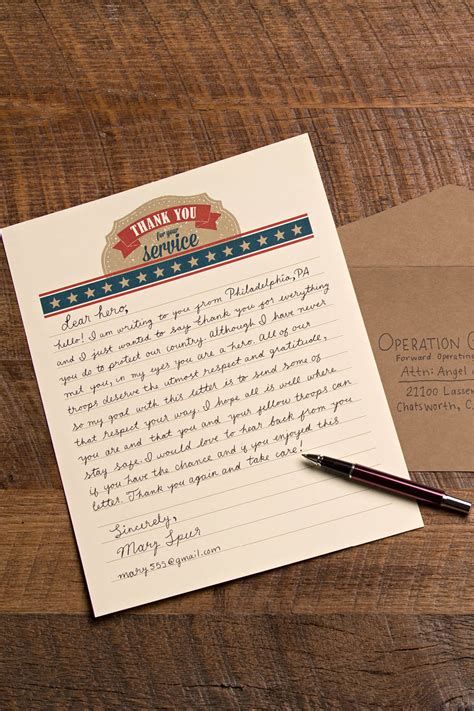 THANK YOU
for your
service
Dear hero,
hello! I am writing to you from Philadelphia, PA
and I just wanted to say thank you for everything
you do to protect our country. although I have never
met you, in my eyes you are a hero. All of our
troops deserve the utmost respect and gratitude,
so my goal with this letter is to send some of
that respect your way. I hope all is well where
you are and that you and your fellow troops can
stay safe. I would love to hear back from you
if you have the chance and if you enjoyed this
letter. Thank you again and take care!
Sincerely,
Mary Spers
mary555@gmail.com
OPERATION G
Forward Operating
Attn: Angel
21100 Lassen
Chatsworth, C